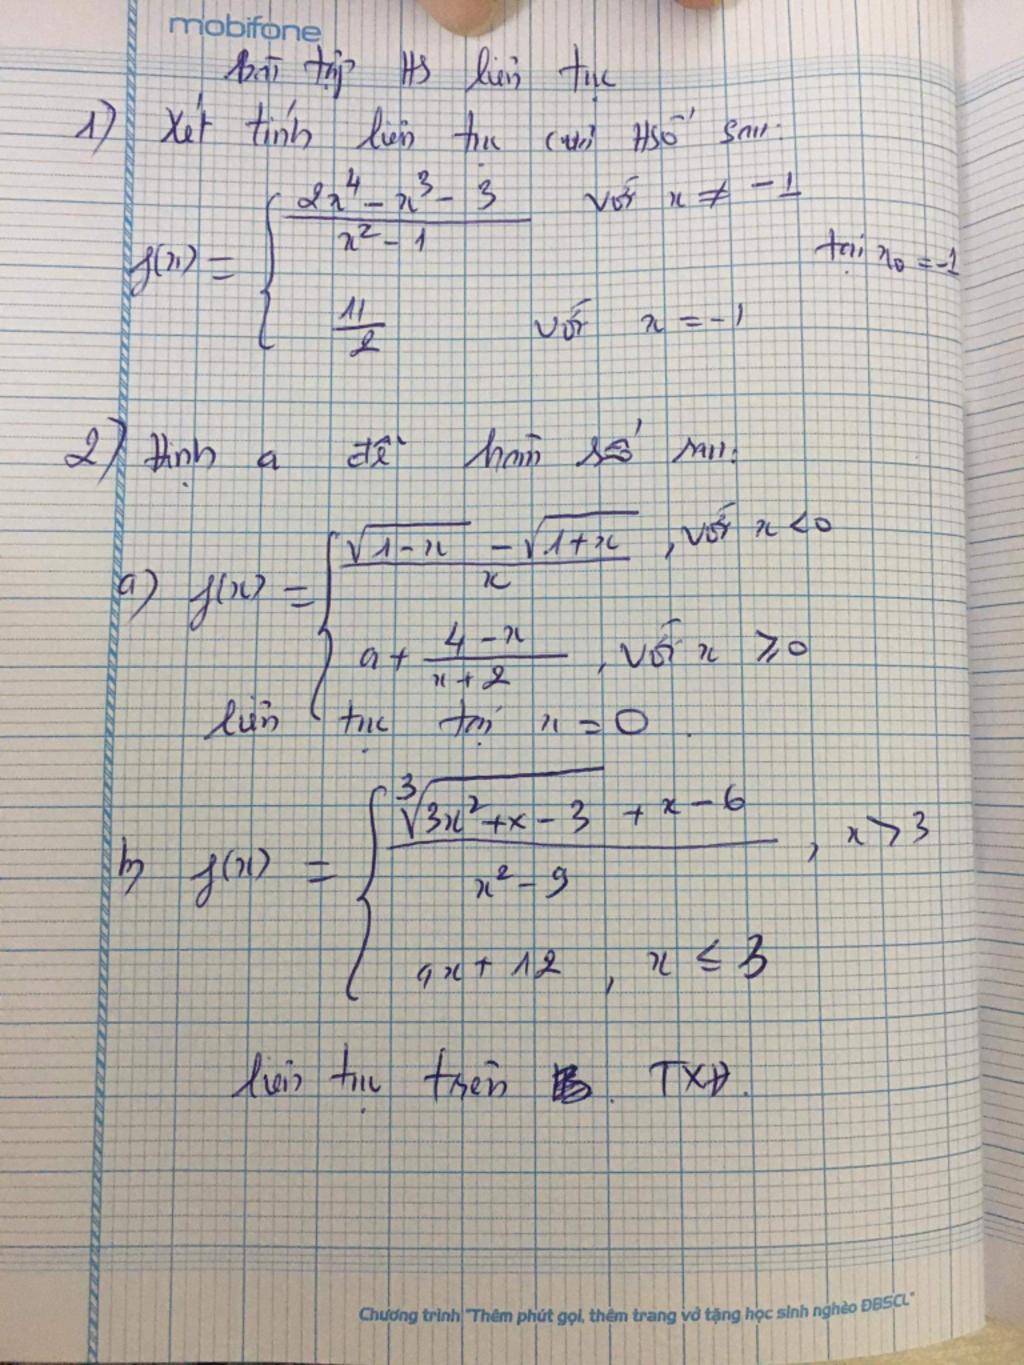 mobifone
Bài tập HS liên tục
1) Xét tính liên tục của Hsố sau:
f(x) = { (2x⁴ - x³ - 3)/(x² - 1) với x ≠ -1
tại x₀ = -1
11/2 với x = -1
2) Định a để hàm số sau:
a) f(x) = { (√(1-x) - √(1+x))/x , với x < 0
a + (4-x)/(x+2) , với x ≥ 0
liên tục tại x = 0.
b) f(x) = { (³√(3x²+x-3) + x - 6)/(x² - 9) , x > 3
ax + 12 , x ≤ 3
liên tục trên TXĐ.
Chương trình "Thêm phút gọi, thêm trang vở tặng học sinh nghèo ĐBSCL"